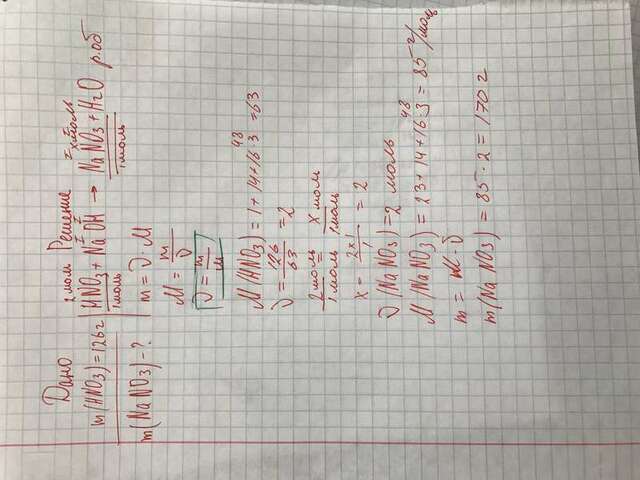 Дано
m(HNO3)=126г
m(NaNO3)-?
Решение
2 моль x моль
HNO3 + NaOH → NaNO3 + H2O р.об
1 моль 1 моль
m = ν · M
M = m/ν
ν = m/M
48
M(HNO3) = 1+14+16·3 = 63
ν = 126/63 = 2
2 моль/1 моль = x моль/1 моль
x = 2×1/1 = 2
ν(NaNO3) = 2 моль
48
M(NaNO3) = 23+14+16·3 = 85 г/моль
m = M · ν
m(NaNO3) = 85 · 2 = 170 г